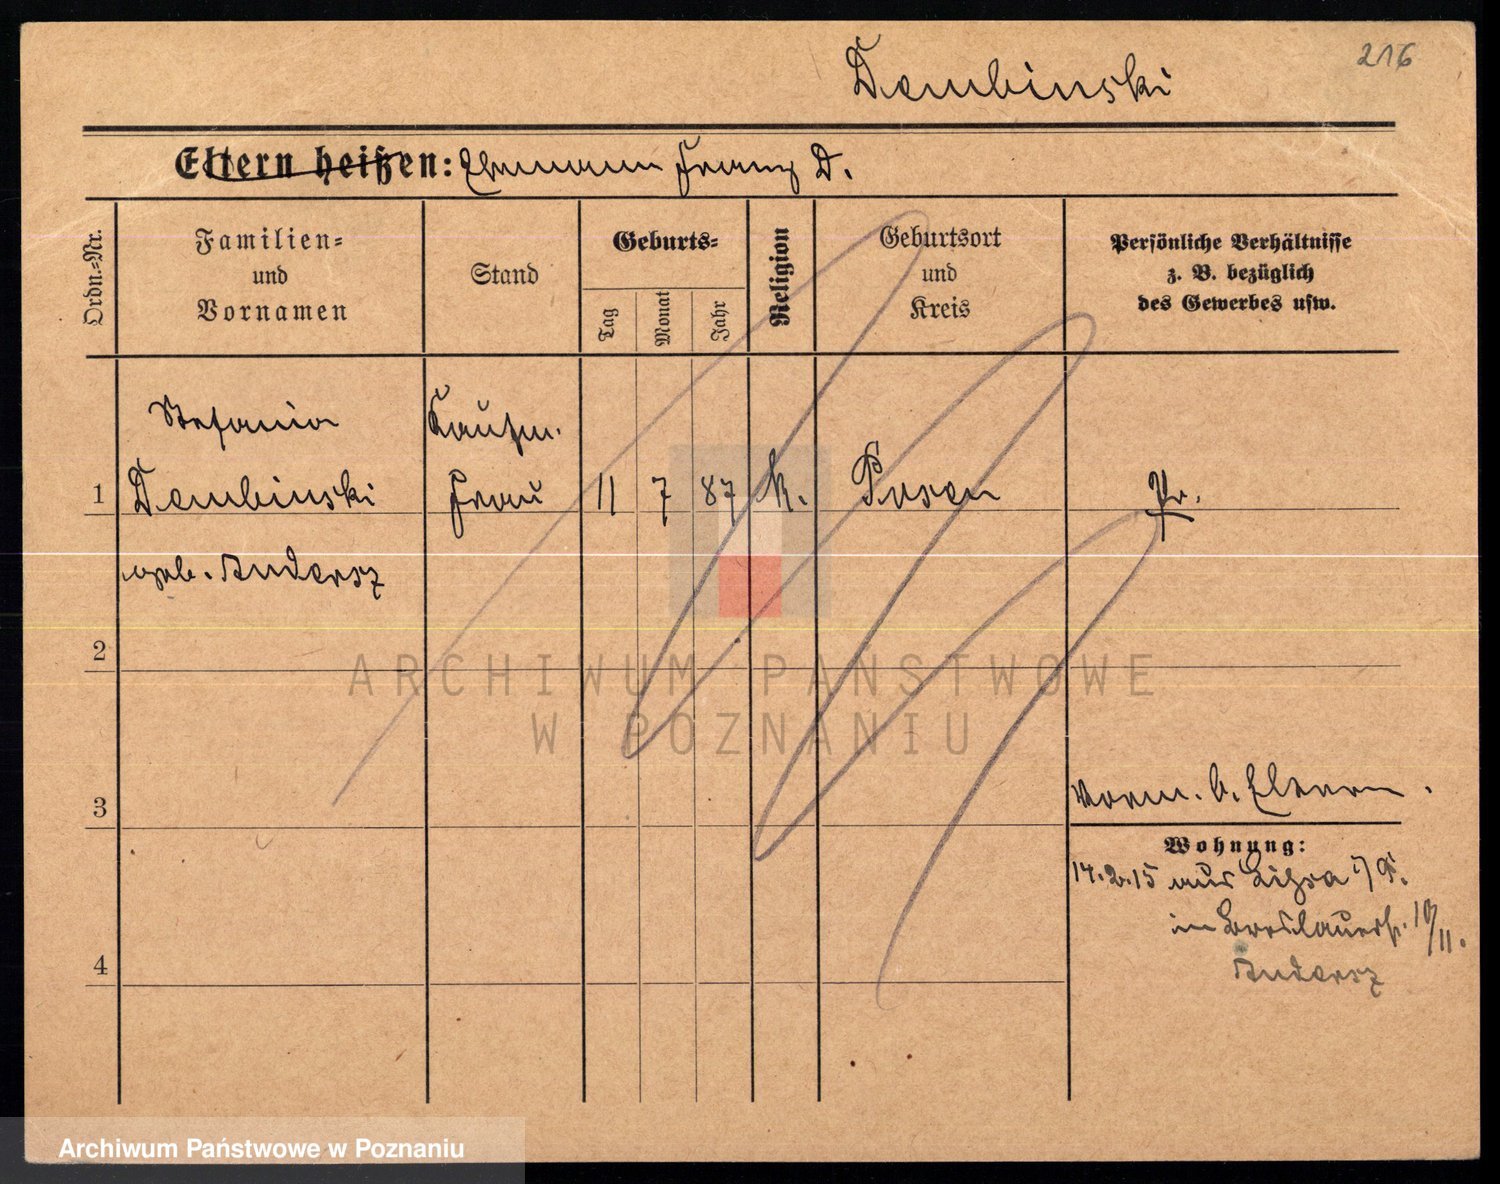 216
Dembinski
Eltern heißen: Ehemann Franz D.
Ordn.-Nr.
Familien-
und
Vornamen
Stand
Geburts-
Tag
Monat
Jahr
Religion
Geburtsort
und
Kreis
Persönliche Verhältnisse
z. B. bezüglich
des Gewerbes usw.
Stefania Kaufm.
1 Dembinski Frau 11 7 87 k. Posen Pr.
geb. Andersz
2
3
4
Vorm. b. Eltern.
Wohnung:
14.2.15 aus Lissa i/P.
in Breslauerstr. 10/11.
Andersz
ARCHIWUM PAŃSTWOWE
W POZNANIU
Archiwum Państwowe w Poznaniu